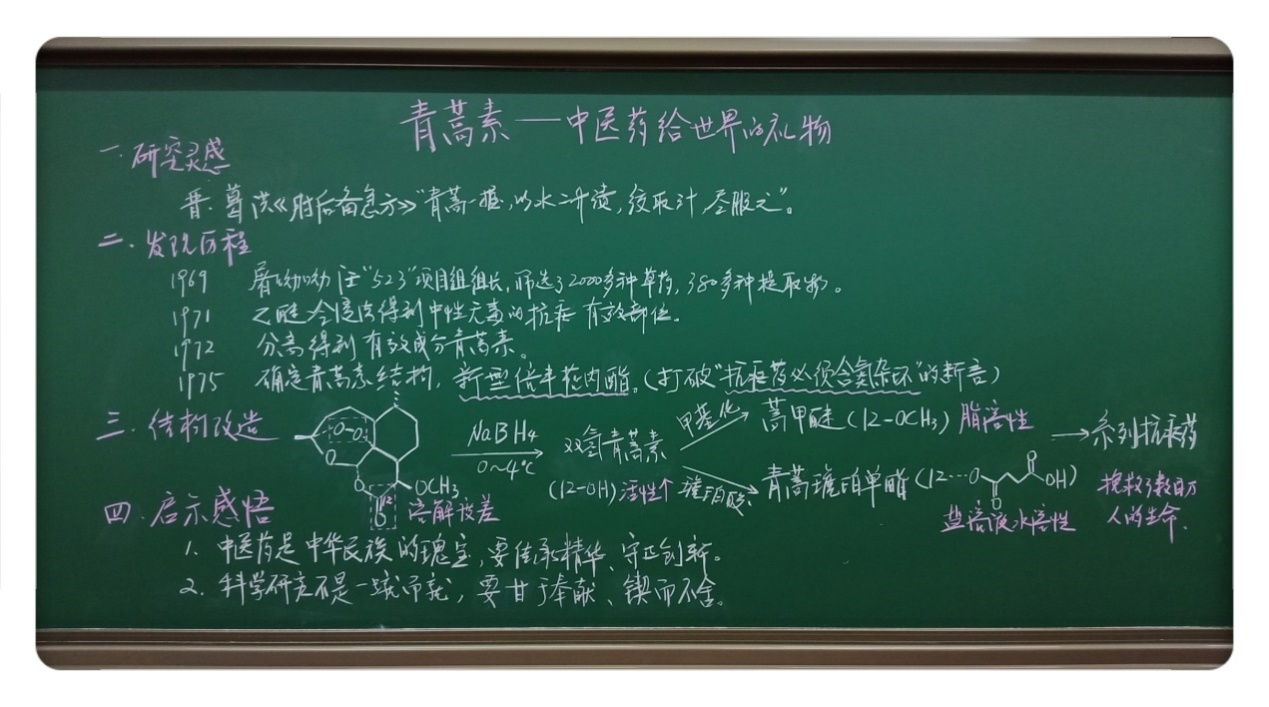 青蒿素——中医药给世界的礼物
一. 研究灵感
晋. 葛洪《肘后备急方》"青蒿一握,以水二升渍,绞取汁,尽服之"。
二. 发现历程
1969 屠呦呦 任"523"项目组组长,筛选了2000多种草药,380多种提取物。
1971 乙醚冷浸法得到中性无毒的抗疟有效部位。
1972 分离得到有效成分青蒿素。
1975 确定青蒿素结构,新型倍半萜内酯。(打破"抗疟药必须含氮杂环"的断言)
三. 结构改造
O-O
O
O
O
12
OCH3
溶解较差
NaBH4
0~4℃
双氢青蒿素
(12-OH) 活性↑
甲基化
蒿甲醚 (12-OCH3) 脂溶性
琥珀酸
青蒿琥珀单酯 (12…O O O OH)
盐溶液水溶性
→系列抗疟药
挽救了数百万
人的生命.
四. 启示感悟
1. 中医药是中华民族的瑰宝,要传承精华、守正创新。
2. 科学研究不是一蹴而就,要甘于奉献、锲而不舍。